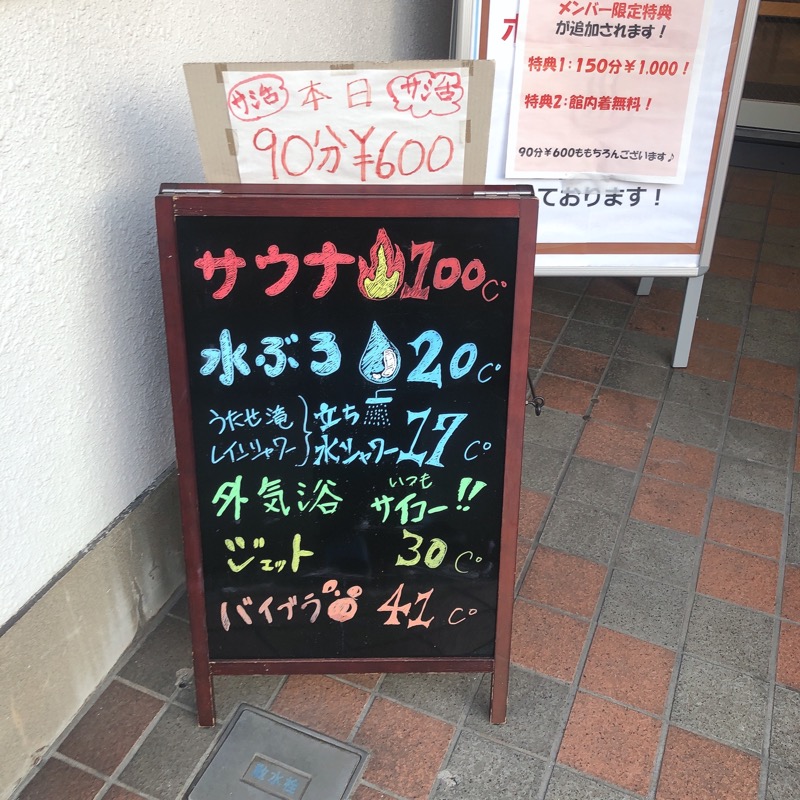 サ活 本日 サ活
90分¥600
サウナ 100C°
水ぶろ 20C°
うたせ滝
レインシャワー
立ち
水シャワー 17C°
外気浴 いつも
サイコー!!
ジェット 30C°
バイブラ 41C°
メンバー限定特典
が追加されます！
特典1：150分￥1,000！
特典2：館内着無料！
90分￥600ももちろんございます♪
ております！
散水栓